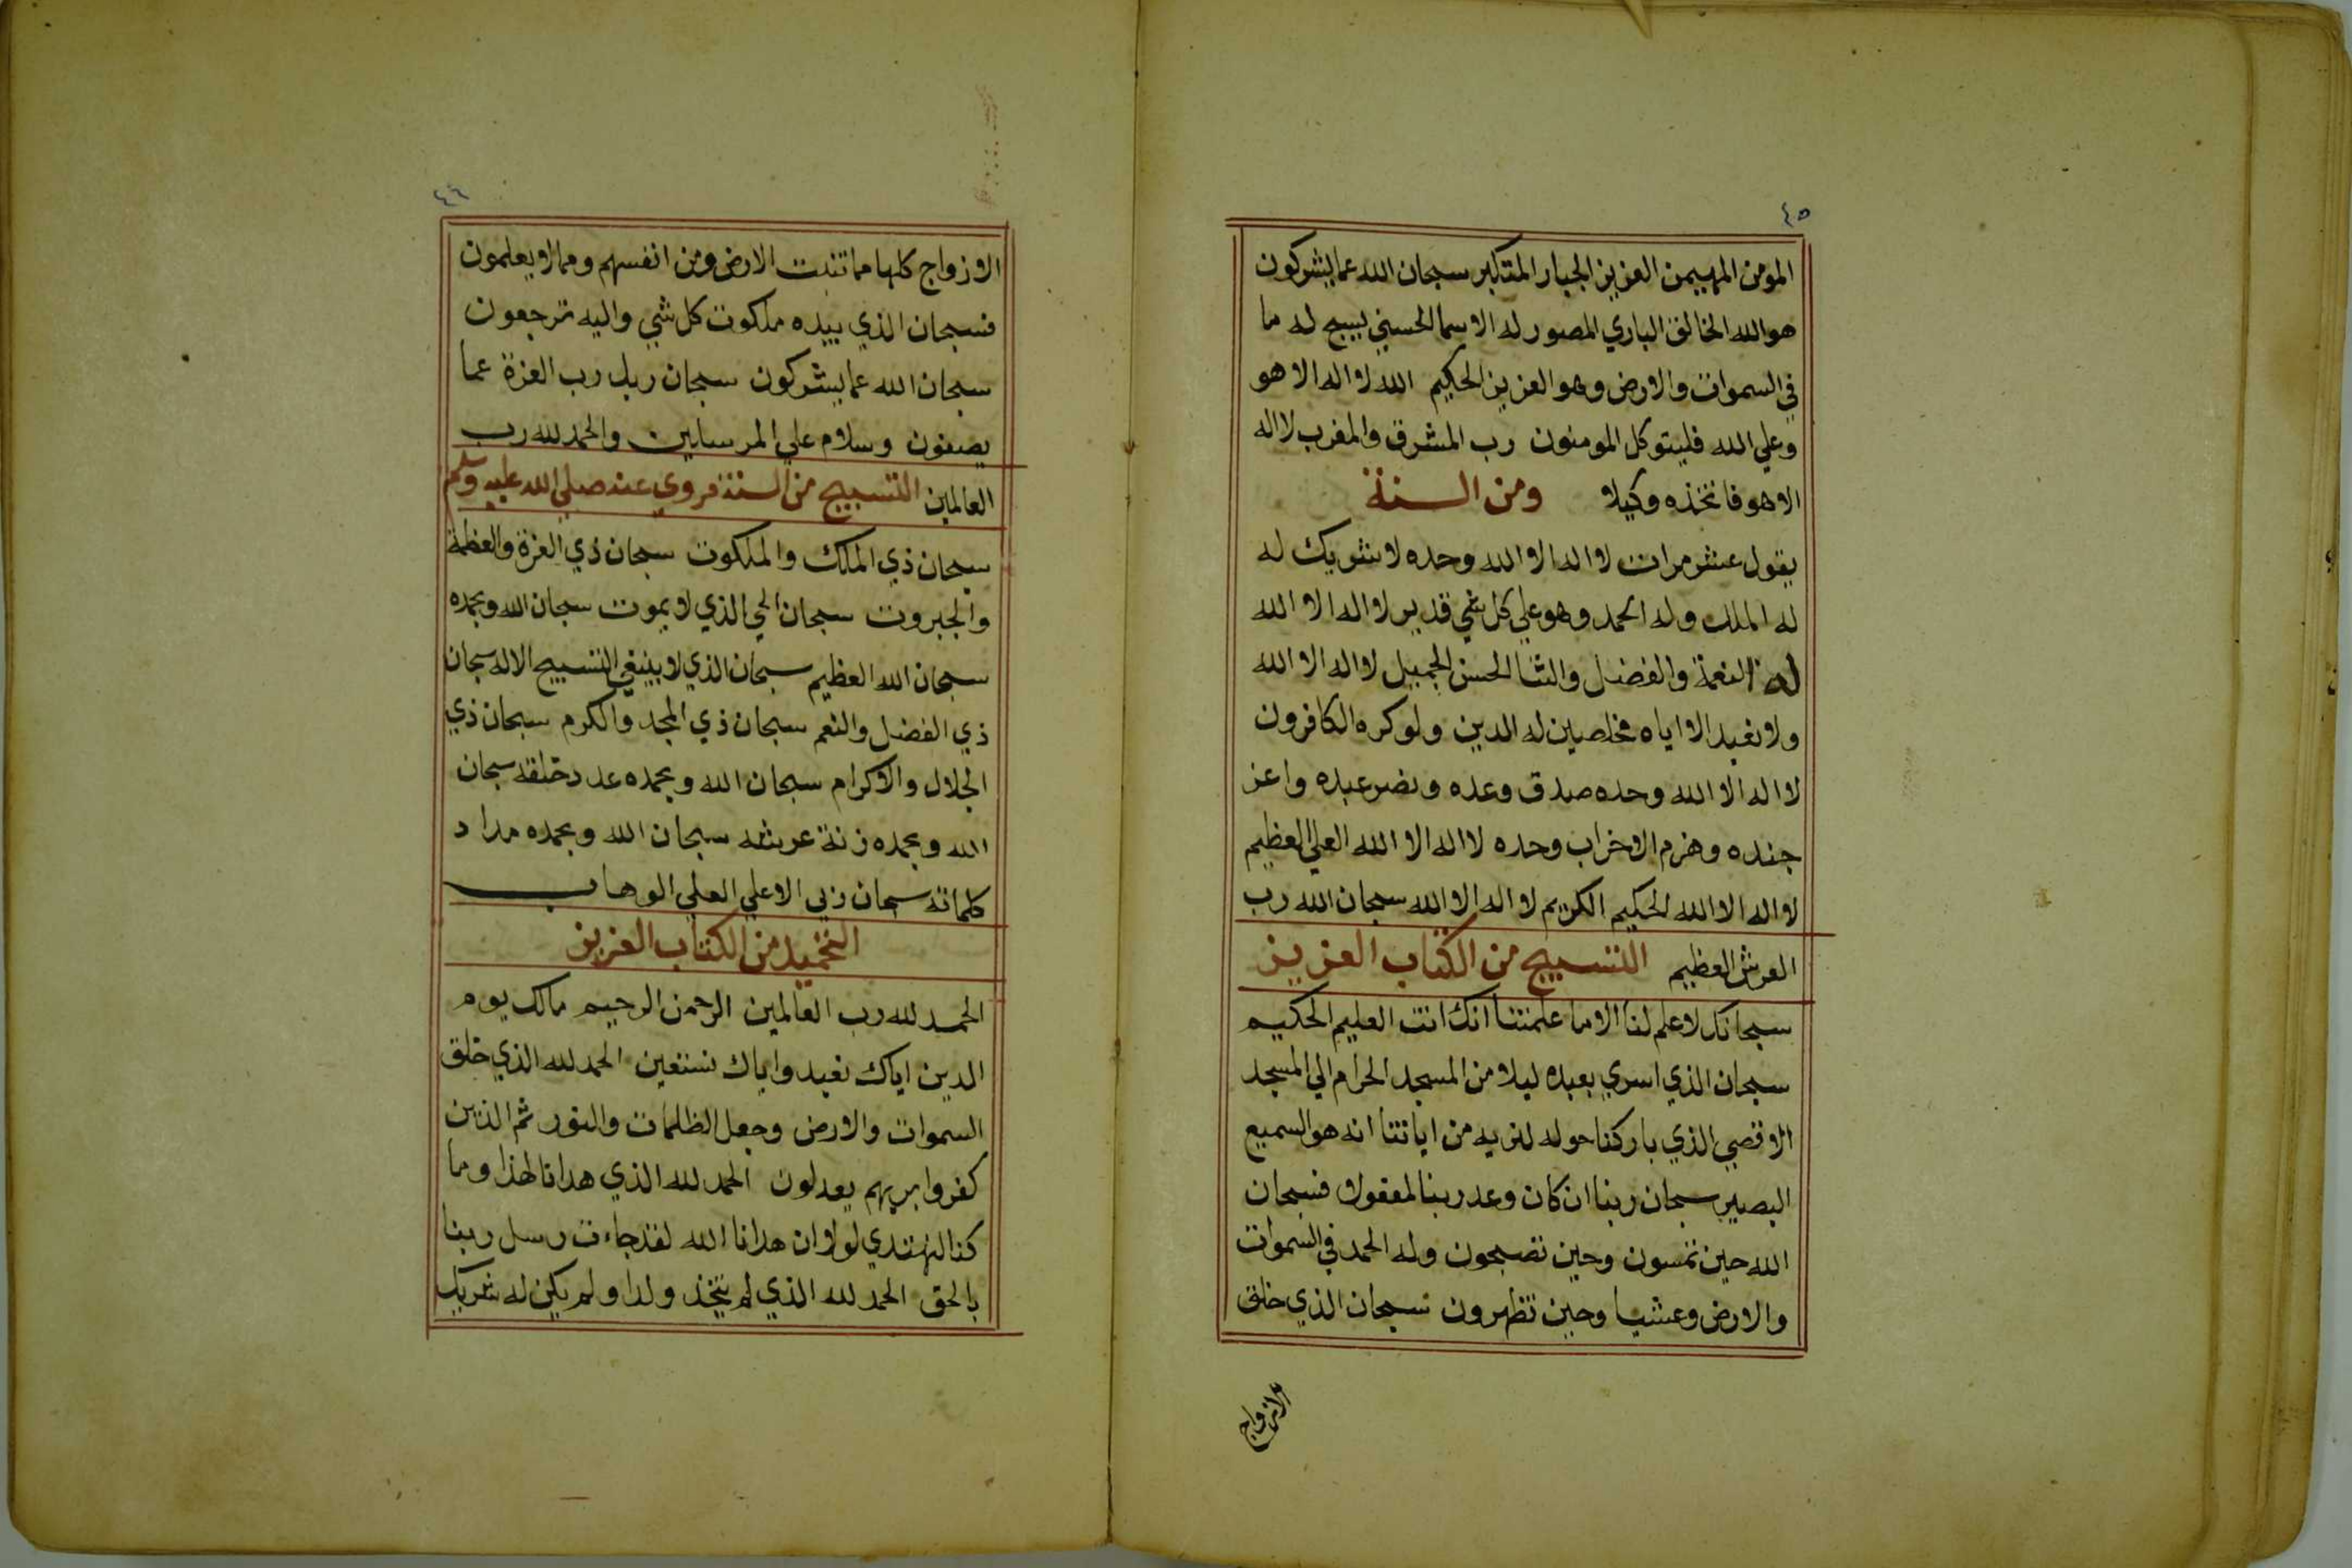 ٤٥
المومن المهيمن العزيز الجبار المتكبر سبحان الله عما يشركون
هو الله الخالق الباري المصور له الاسما الحسني يسبح له ما
في السموات والارض وهو العزيز الحكيم الله لا اله الا هو
وعلي الله فليتوكل المومنون رب المشرق والمغرب لا اله
الا هو فاتخذه وكيلا ومن السنة
يقول عشر مرات لا اله الا الله وحده لا شريك له
له الملك وله الحمد وهو علي كل شي قدير لا اله الا الله
له النعمة والفضل والثنا الحسن الجميل لا اله الا الله
ولا نعبد الا اياه مخلصين له الدين ولو كره الكافرون
لا اله الا الله وحده صدق وعده ونصر عبده واعز
جنده وهزم الاحزاب وحده لا اله الا الله العلي العظيم
لا اله الا الله الحكيم الكريم لا اله الا الله سبحان الله رب
العرش العظيم التسبيح من الكتاب العزيز
سبحانك لا علم لنا الا ما علمتنا انك انت العليم الحكيم
سبحان الذي اسري بعبده ليلا من المسجد الحرام الي المسجد
الاقصي الذي باركنا حوله لنريه من اياتنا انه هو السميع
البصير سبحان ربنا ان كان وعد ربنا لمفعولا فسبحان
الله حين تمسون وحين تصبحون وله الحمد في السموات
والارض وعشيا وحين تظهرون سبحان الذي خلق
الازواج
٤٦
الازواج كلها مما تنبت الارض ومن انفسهم ومما لا يعلمون
فسبحان الذي بيده ملكوت كل شي واليه ترجعون
سبحان الله عما يشركون سبحان ربك رب العزة عما
يصفون وسلام علي المرسلين والحمد لله رب
العالمين التسبيح من السنة مروي عنه صلي الله عليه وسلم
سبحان ذي الملك والملكوت سبحان ذي العزة والعظمة
والجبروت سبحان الحي الذي لا يموت سبحان الله وبحمده
سبحان الله العظيم سبحان الذي لا ينبغي التسبيح الا له سبحان
ذي الفضل والنعم سبحان ذي المجد والكرم سبحان ذي
الجلال والاكرام سبحان الله وبحمده عدد خلقه سبحان
الله وبحمده زنة عرشه سبحان الله وبحمده مداد
كلماته سبحان ربي الاعلي العلي الوهاب
التحميد من الكتاب العزيز
الحمد لله رب العالمين الرحمن الرحيم مالك يوم
الدين اياك نعبد واياك نستعين الحمد لله الذي خلق
السموات والارض وجعل الظلمات والنور ثم الذين
كفروا بربهم يعدلون الحمد لله الذي هدانا لهذا وما
كنا لنهتدي لولا ان هدانا الله لقد جاءت رسل ربنا
بالحق الحمد لله الذي لم يتخذ ولدا ولم يكن له شريك